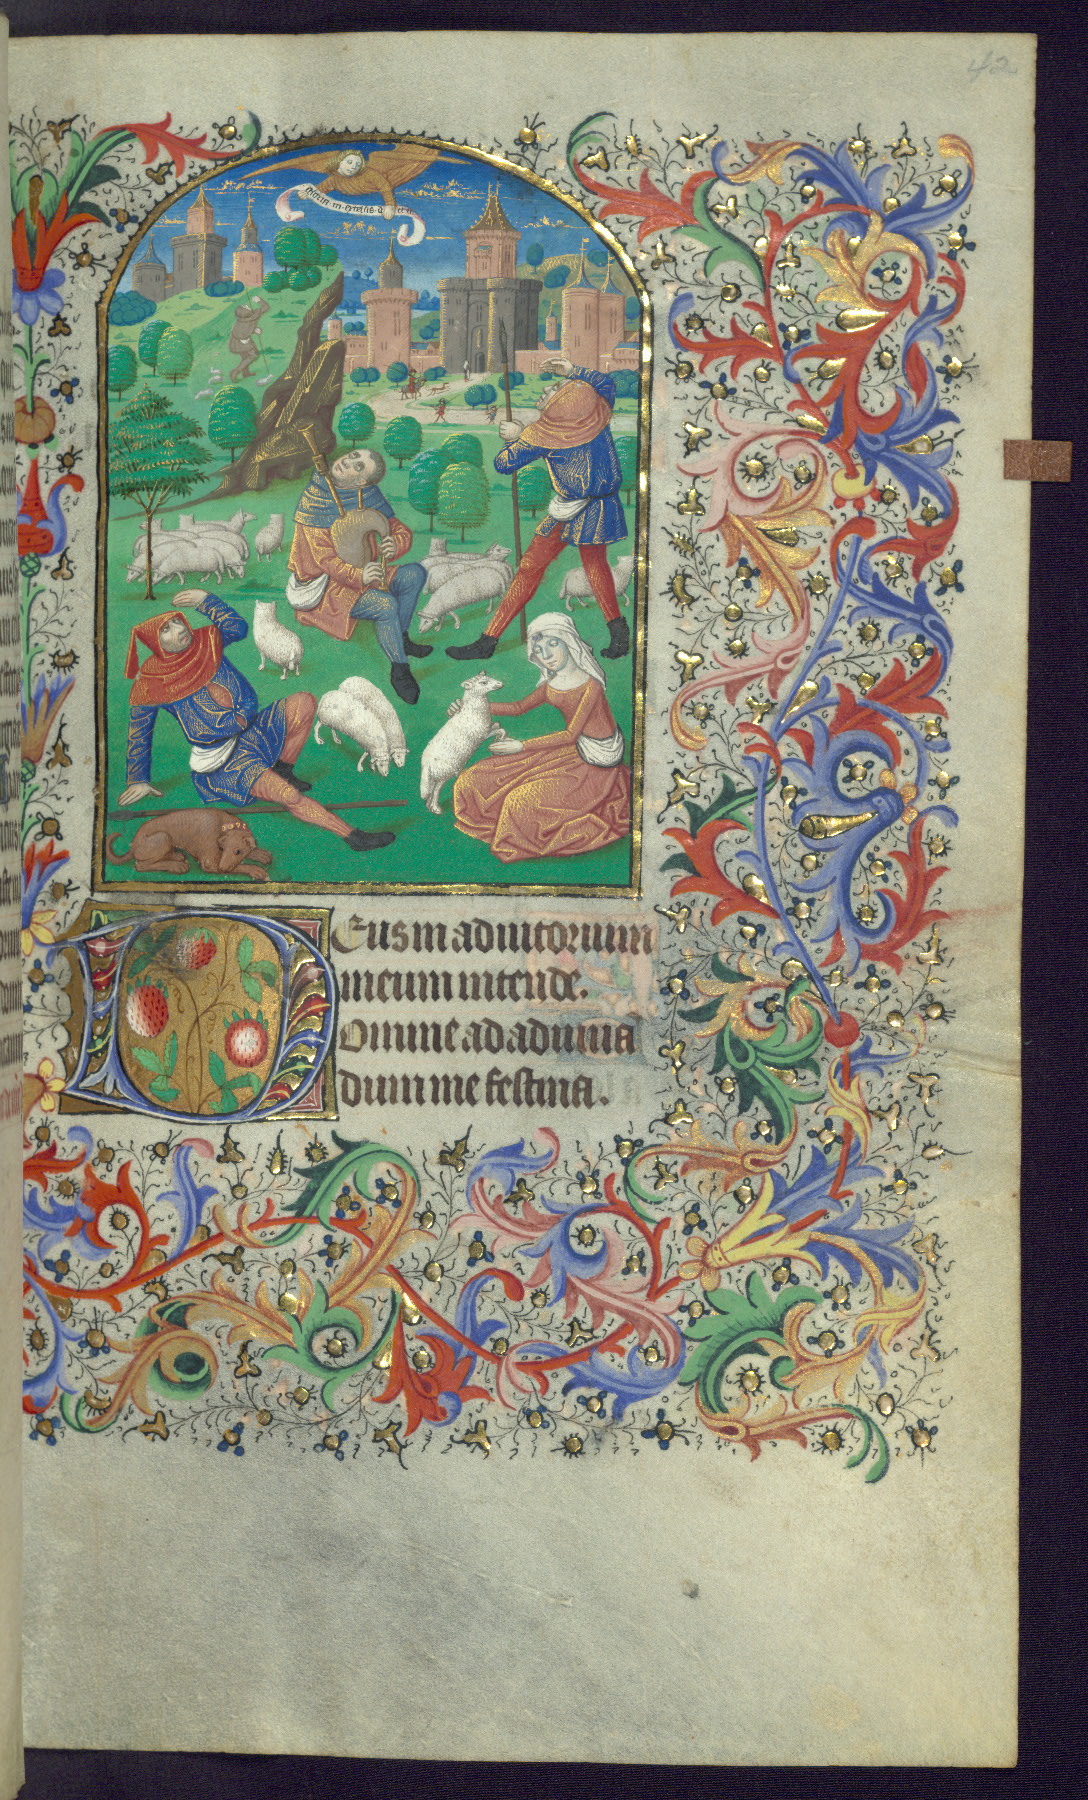 42
Gloria in excelsis deo
Deus in adiutorium
meum intende.
Domine ad adiuua
dum me festina.